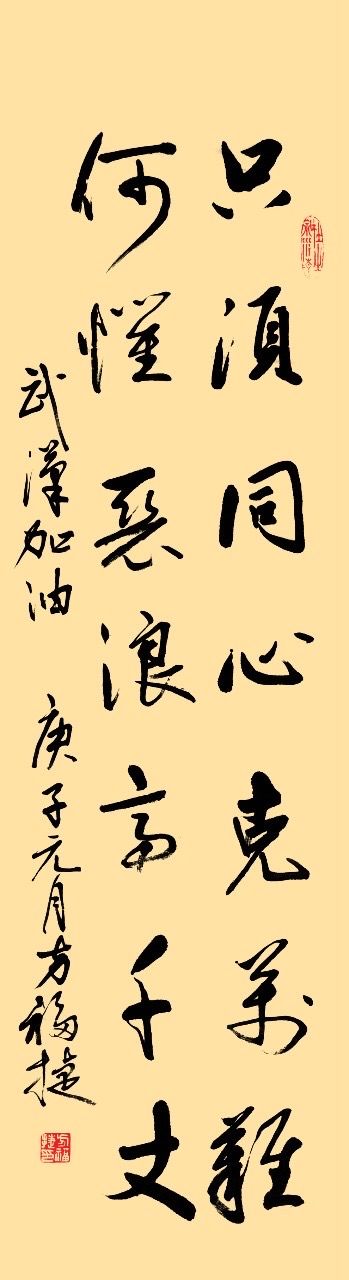 只須同心克萬難
何懼惡浪高千丈
武漢加油 庚子元月方福捷
方福捷印